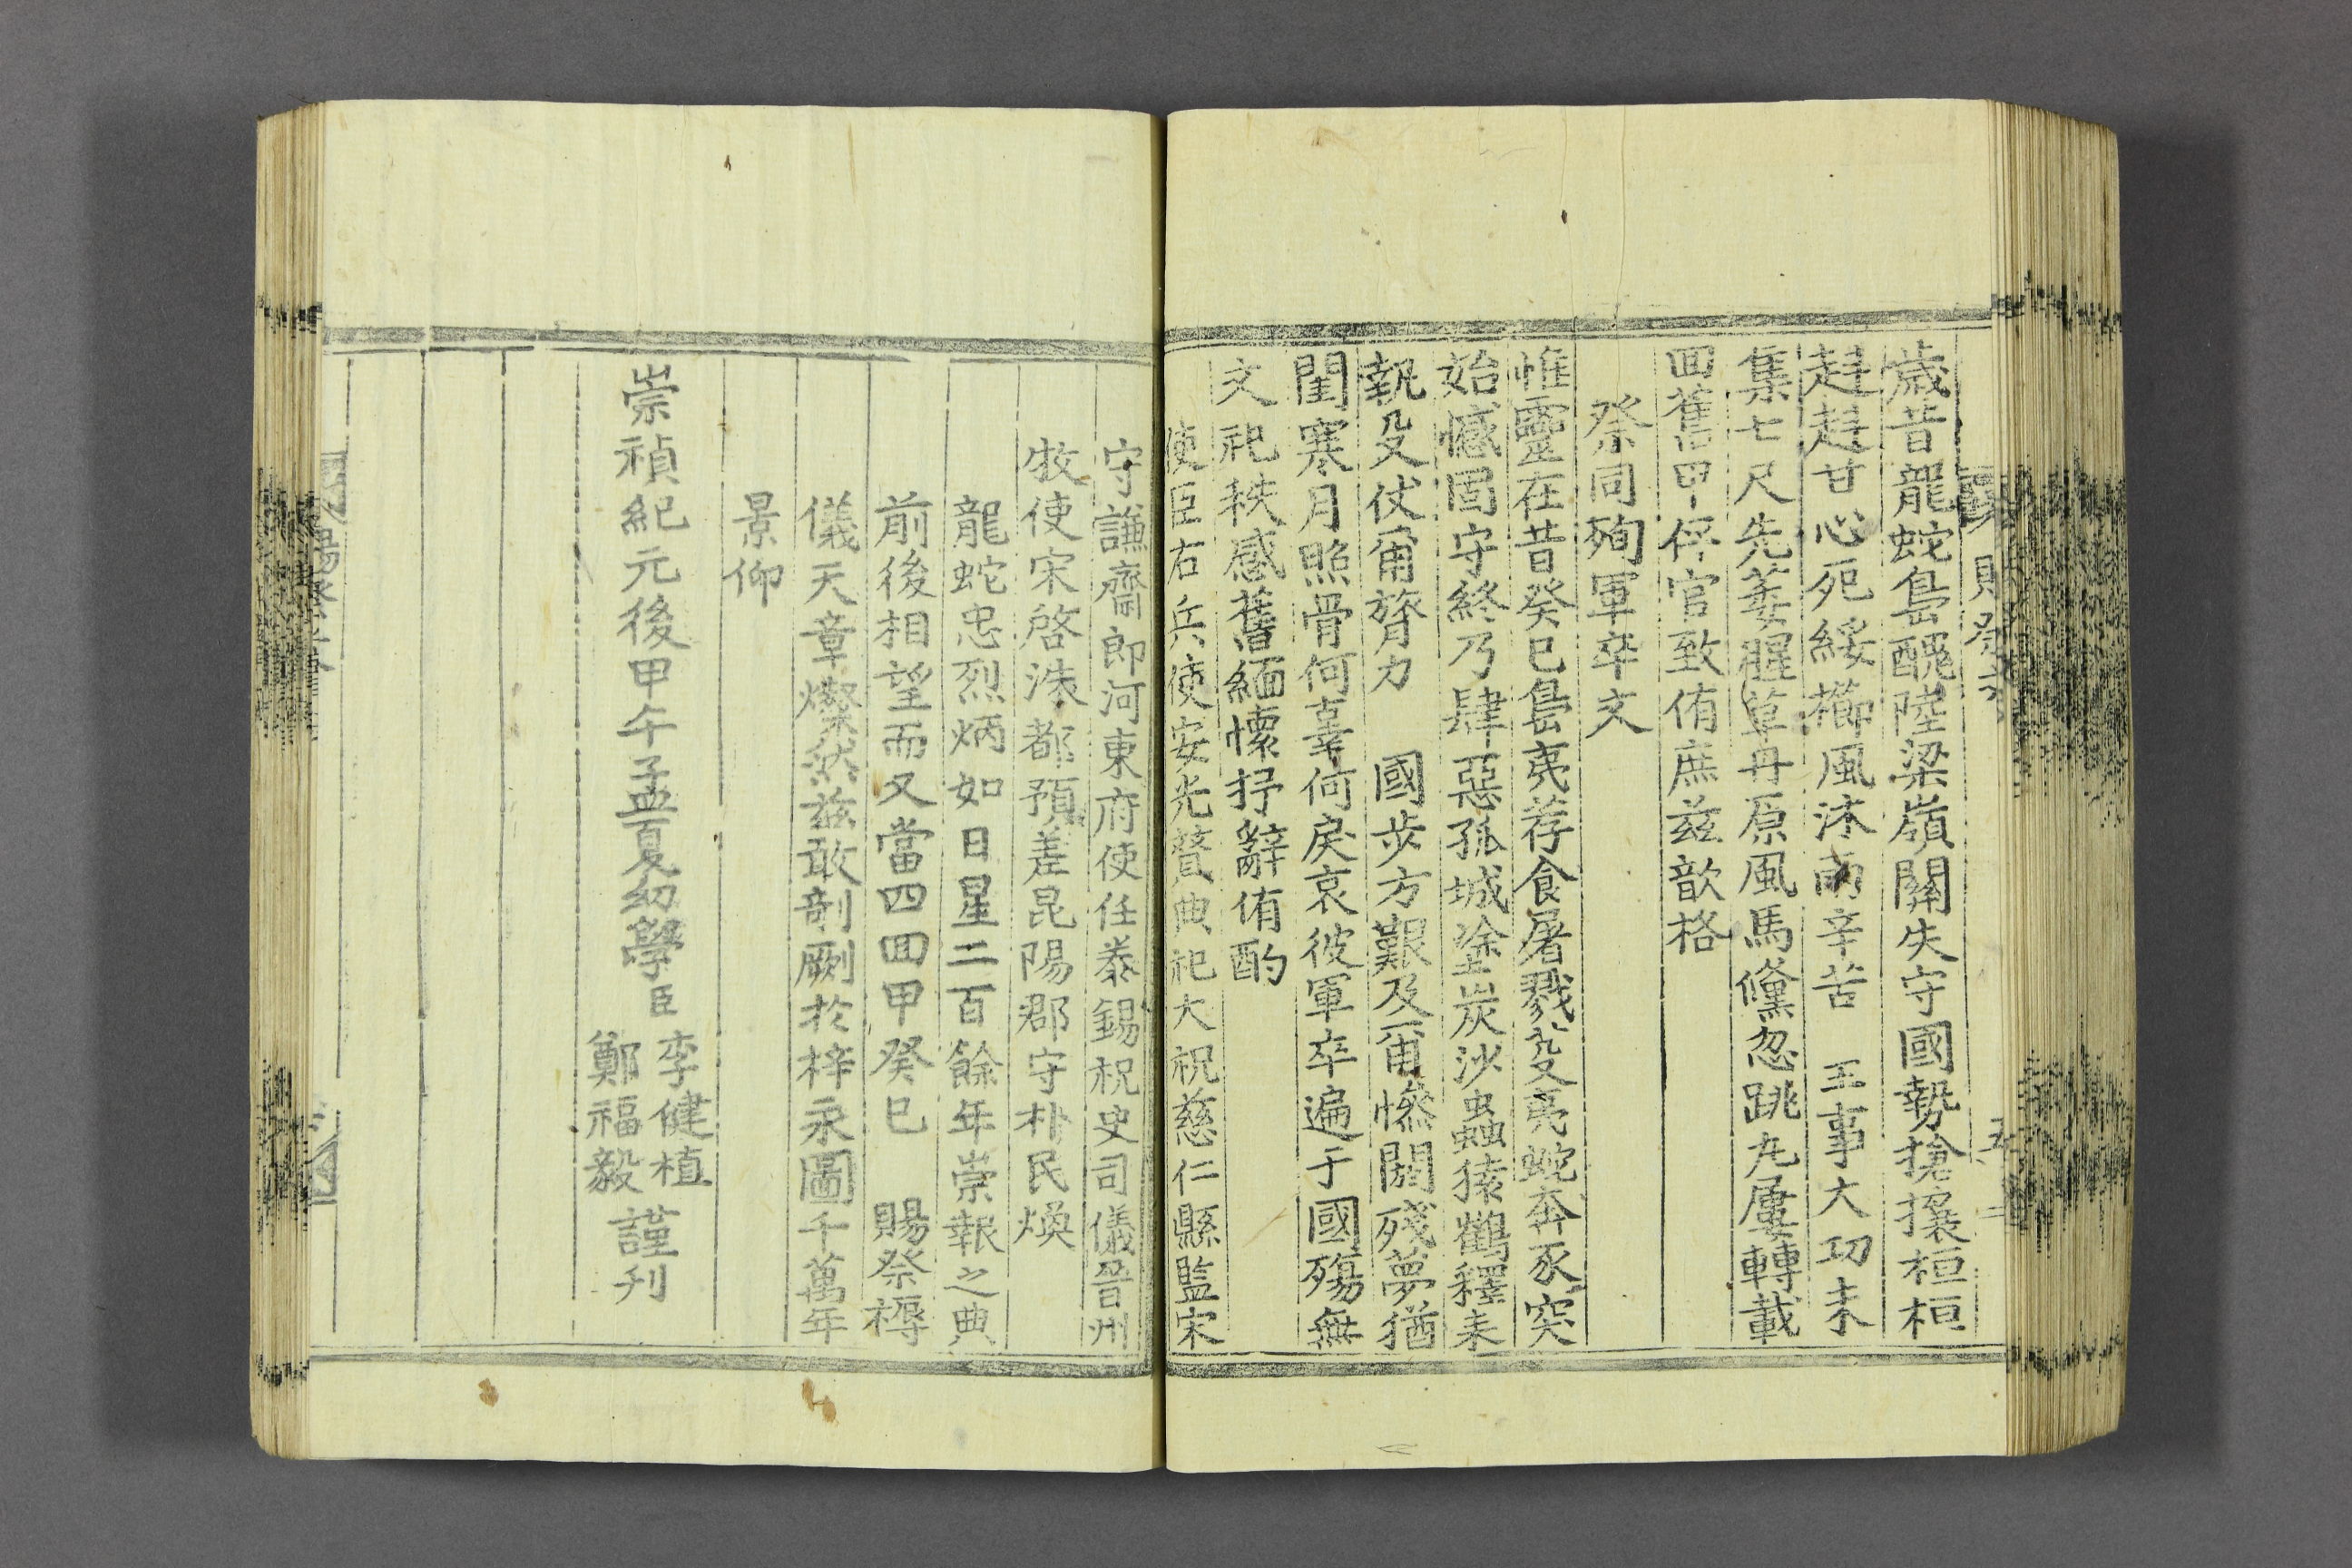 賜祭文
五
歲昔龍蛇島醜陸梁嶺關失守國勢搶攘桓桓
赳赳甘心死綏櫛風沐雨辛苦 王事大功未
集七尺先萎腥草丹原風馬儻忽跳丸屢轉載
回舊甲伻官致侑庶玆歆格
祭同殉軍卒文
惟靈在昔癸巳島夷荐食屠戮殳夷蛇奔豕突
始憾固守終乃肆惡孤城塗炭沙蟲猿鶴釋耒
執殳仗爾膂力 國步方艱及爾慘閼殘夢猶
閨寒月照骨何辜何戾哀彼軍卒遍于國殤無
文祀秩感舊緬懷抒辭侑酌
使臣右兵使安光贊典祀大祝慈仁縣監宋
守謙齋郎河東府使任泰錫祝史司儀晉州
牧使宋啓洙都預差昆陽郡守朴民煥
龍蛇忠烈炳如日星二百餘年崇報之典
前後相望而又當四回甲癸巳 賜祭禭
儀天章燦然玆敢剞劂於梓永圖千萬年
景仰
崇禎紀元後甲午孟夏幼學臣李健植鄭福毅謹刊